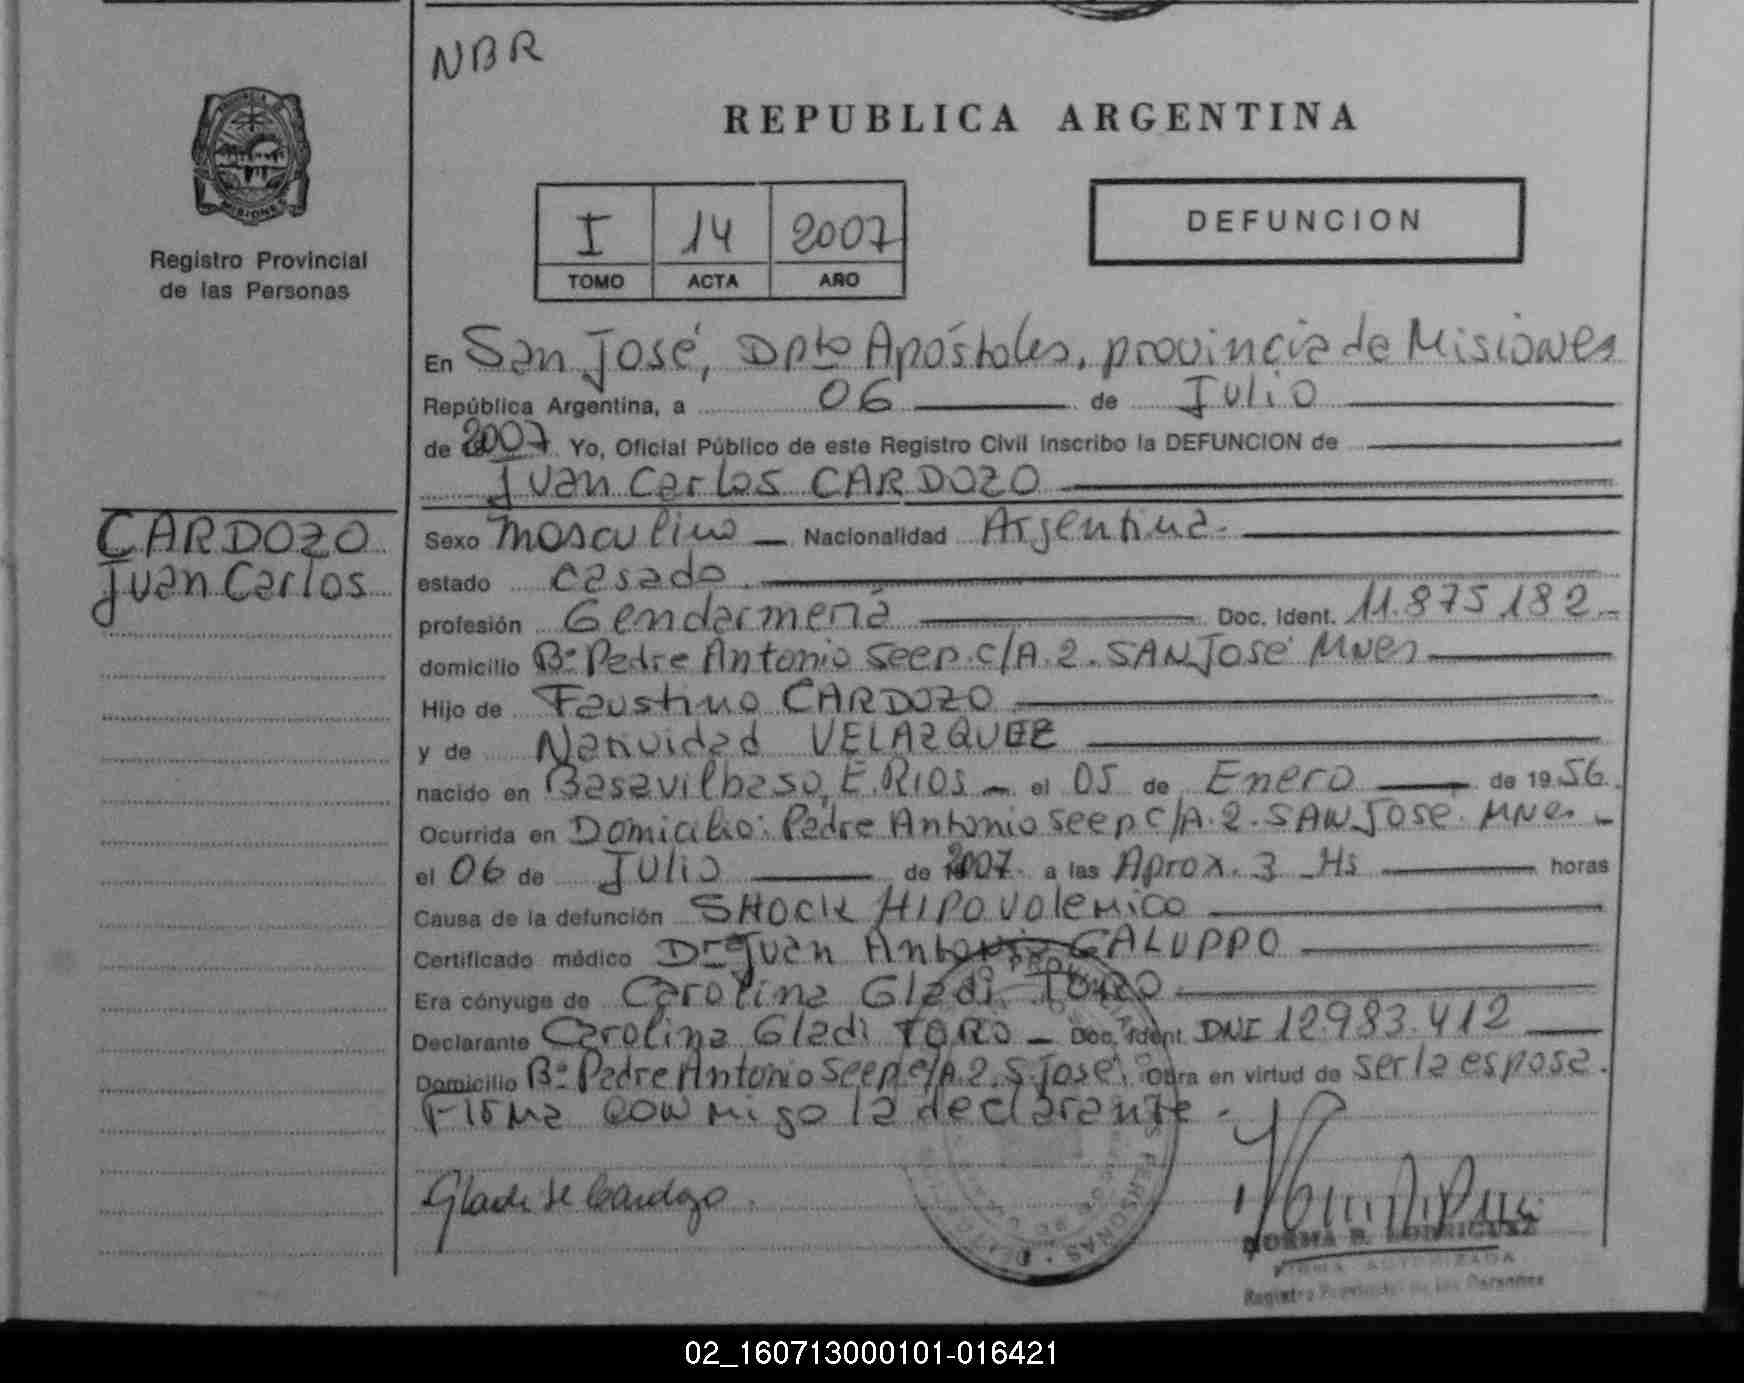 NBR
REPUBLICA ARGENTINA
MISIONES
Registro Provincial
de las Personas
I 14 2007
TOMO ACTA AÑO
DEFUNCION
En San José, Dpto Apóstoles, provincia de Misiones
República Argentina, a 06 de Julio
de 2007 Yo, Oficial Público de este Registro Civil inscribo la DEFUNCION de
Juan Carlos CARDOZO
CARDOZO
Juan Carlos
Sexo Masculino Nacionalidad Argentina.
estado casado
profesión Gendarmería Doc. Ident. 11.875.182
domicilio Bº Padre Antonio Seep. c/A. 2. SAN JOSÉ Mnes
Hijo de Faustino CARDOZO
y de Natividad VELAZQUEZ
nacido en Basavilbaso, E. RIOS el 05 de Enero de 1956.
Ocurrida en Domicilio: Padre Antonio Seep c/A. 2. SAN JOSE. MNes
el 06 de Julio de 2007. a las Aprox. 3 Hs horas
Causa de la defunción SHOCK HIPOVOLEMICO
Certificado médico Dr. Juan Antonio GALUPPO
Era cónyuge de Carolina Gladi TORO
Declarante Carolina Gladi TORO Doc. Ident. DNI 12.983.412
Domicilio Bº Padre Antonio Seep c/A. 2. S. José. Obra en virtud de ser la esposa.
Firma conmigo la declarante.
Gladi de Cardozo.
NORMA B. RODRIGUEZ
FIRMA AUTORIZADA
Registro Provincial de las Personas
02_160713000101-016421